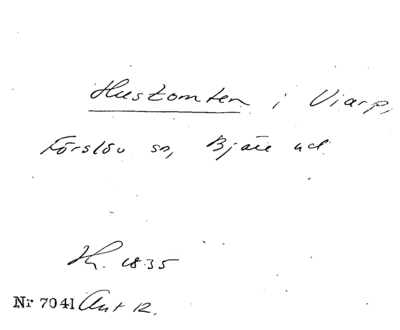 Hustomten i Viarp,
Förslöv sn, Bjäre hd
H. 1835
Nr 7041 Avt 12.